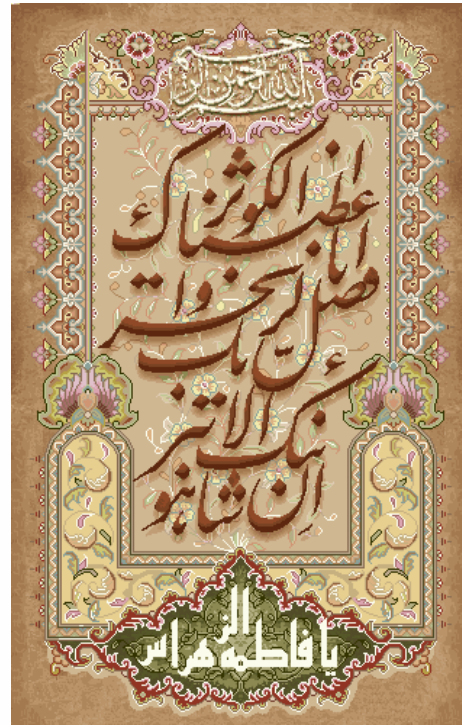 بسم الله الرحمن الرحيم
انا اعطیناک الکوثر
فصل لربک وانحر
ان شانئک هو الابتر
یا فاطمه الزهرا س